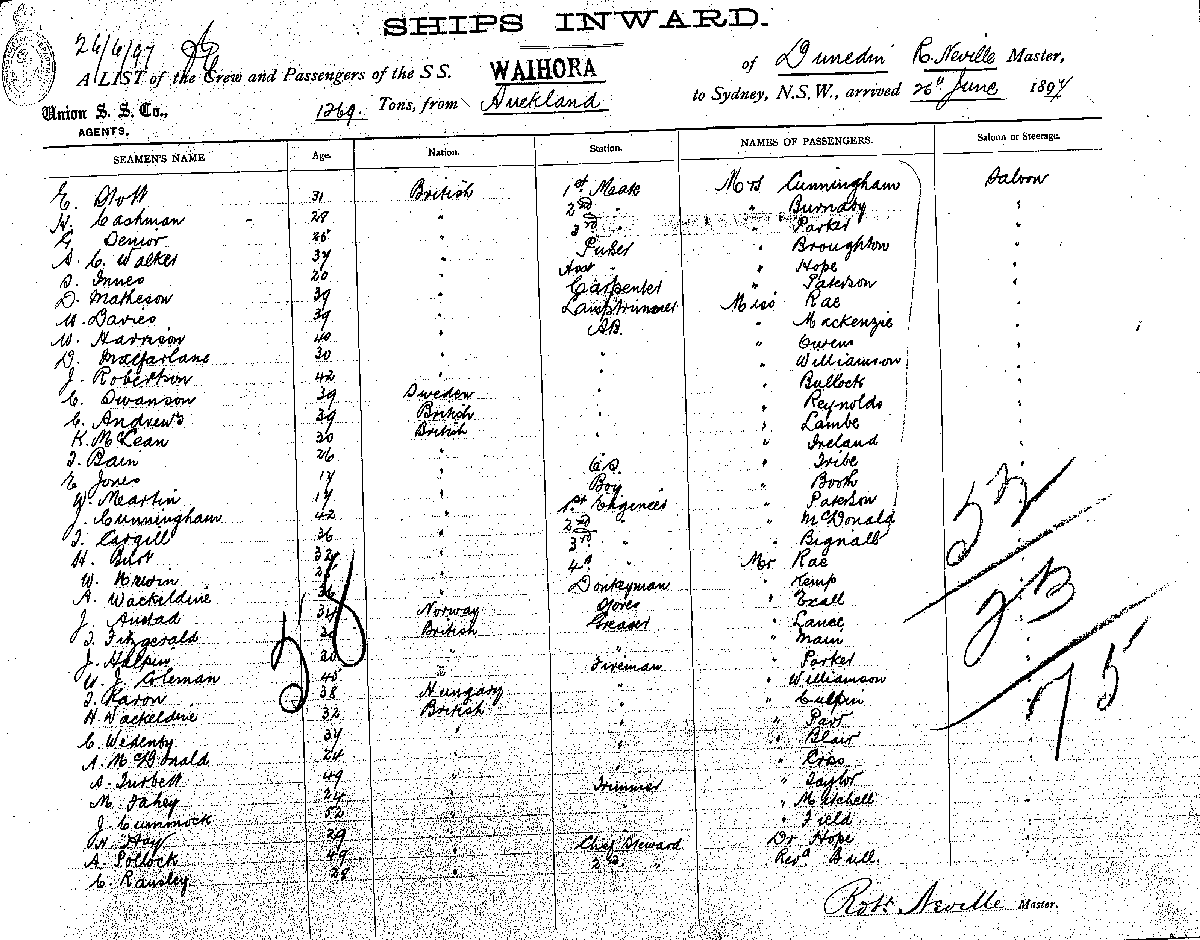 SHIPS INWARD.
26/6/97
A LIST of the Crew and Passengers of the S S. WAIHORA of Dunedin R. Neville Master,
Union S. S. Co., AGENTS. 1269. Tons, from Auckland to Sydney, N.S.W., arrived 26th June 1897
SEAMEN'S NAME Age. Nation. Station. NAMES OF PASSENGERS. Saloon or Steerage.
31 British 1st Mate Mrs Cunningham Saloon
H. Cashman 28 " 2nd " " Burnaby "
G. Denior 3rd " " Parker "
A. C. Walker 37 " Purser " Broughton "
Innes 20 " Asst " Hope "
D. Matheson 39 " Carpenter " Paterson "
W. Davies 39 " Lamptrimmer Miss Rae "
W. Harrison 40 " AB. " Mackenzie "
D. Macfarlane 30 " " " Owens "
J. Robertson 42 " " " Williamson "
C. Swanson 39 Sweden " " Bullock "
C. Andrews 39 British " " Reynolds "
K. McLean 30 British " " Lambe "
Bain 26 " " " Ireland "
E Jones 17 " O.S. " Tribe "
W. Martin 17 " Boy " Booth "
J. Cunningham 42 " 1st Engineer " Paterson "
Cargill 36 " 2nd " " McDonald "
H. Burt 32 " 3rd " " Bignall "
W. 4th " Mr Rae "
A. Wackeldine 36 " Donkeyman " Kemp "
J. Austad 34 Norway " Exall "
Fitzgerald British Greaser " Lance "
J. Halpin " " " Main "
W. J. Coleman 45 " Fireman " Parker "
Karon 38 Hungary " " Williamson "
H Wackeldine 32 British " " Culpin "
C. 34 " " "
A. McDonald 24 " " " Blair "
Turbett 49 " " " Cross "
M. Fahey 24 " Trimmer " Taylor "
J. Cummock 52 " " " Mitchell "
Hay 29 " " " Field "
A. Pollock 49 " Chief Steward Dr Hope "
C. Ransley 28 " 2nd " Revd Bull. "
58
52
23
75
Robt. Neville Master.